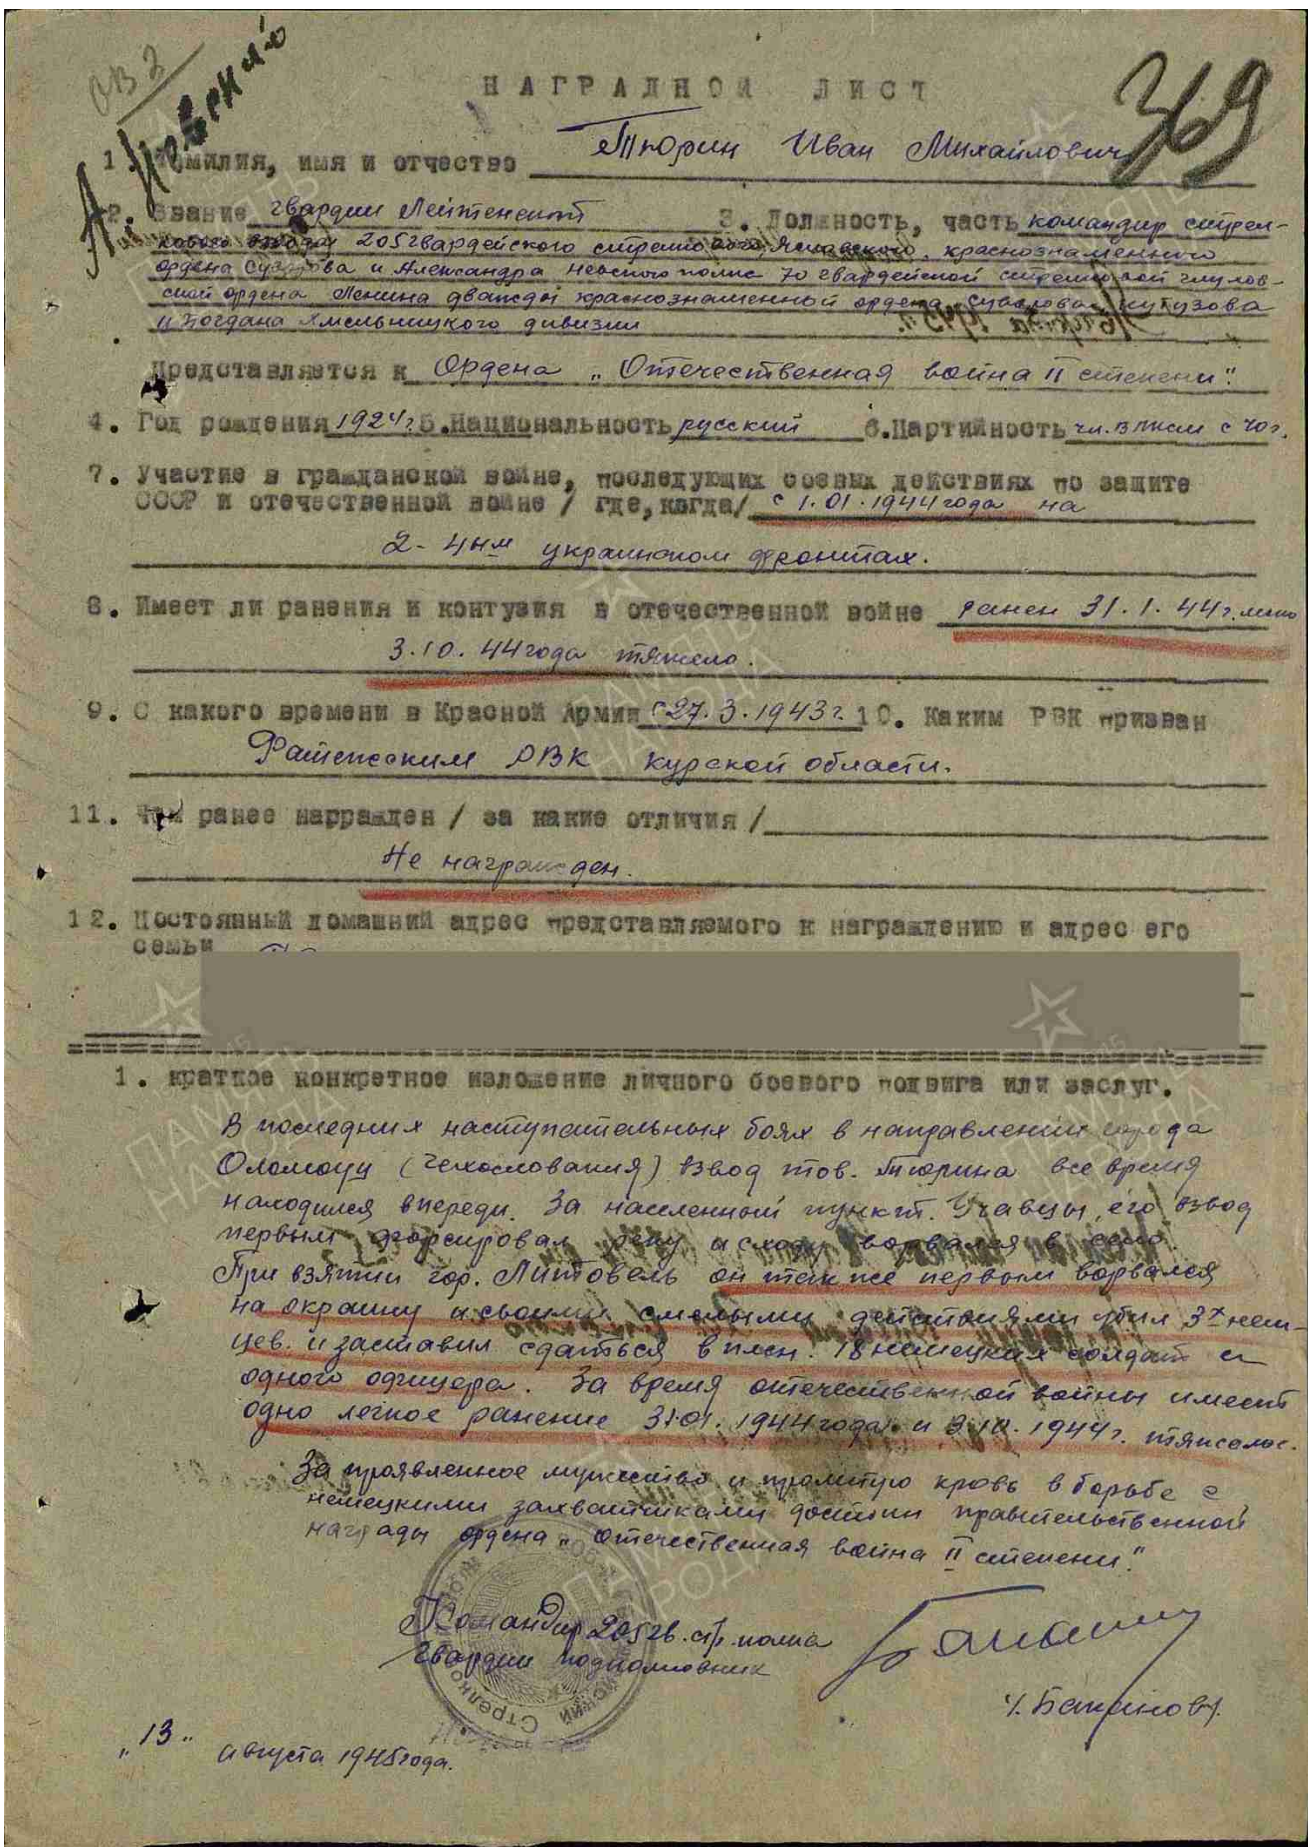 НАГРАДНОЙ ЛИСТ
369
1. Фамилия, имя и отчество Тюрин Иван Михайлович
2. Звание гвардии Лейтенант 3. Должность, часть командир стрел-
кового взвода 205 гвардейского стрелкового, Ясловского, краснознаменного
ордена Суворова и Александра Невского полка 70 гвардейской стрелковой глухов-
ской ордена Ленина дважды краснознаменный ордена Суворова Кутузова
и Богдана Хмельницкого дивизии
Представляется к Ордена „Отечественная война II степени".
4. Год рождения 1924г. 5. Национальность русский 6. Партийность чл. ВЛКСМ с 40г.
7. Участие в гражданской войне, последующих боевых действиях по защите
СССР и отечественной войне / где, когда/ с 1.01.1944 года на
2-4ям украинском фронтах.
8. Имеет ли ранения и контузия в отечественной войне ранен 31.1.44г. легко
3.10.44 года тяжело.
9. С какого времени в Красной Армии с 27.3.1943г. 10. Каким РВК призван
Фатежским РВК Курской области.
11. Чем ранее награжден / за какие отличия /
Не награжден.
12. Постоянный домашний адрес представляемого к награждению и адрес его
семьи
1. краткое конкретное изложение личного боевого подвига или заслуг.
В последних наступательных боях в направлении города
Оломоуц (Чехословакия) взвод тов. Тюрина все время
находился впереди. За населенный пункт. Учавцы, его взвод
первым форсировал реку и сходу ворвался в село.
При взятии гор. Литовель он также первым ворвался
на окраину и своими смелыми действиями убил 3х нем-
цев. и заставил сдаться в плен. 18 немецких солдат и
одного офицера. За время отечественной войны имеет
одно легкое ранение 31.01.1944 года и 3.10.1944г. тяжелое.
За проявленное мужество и пролитую кровь в борьбе с
немецкими захватчиками достоин правительственной
награды ордена „Отечественная война II степени".
Командир 205 гв. стр. полка
гвардии подполковник
„13" августа 1945 года.